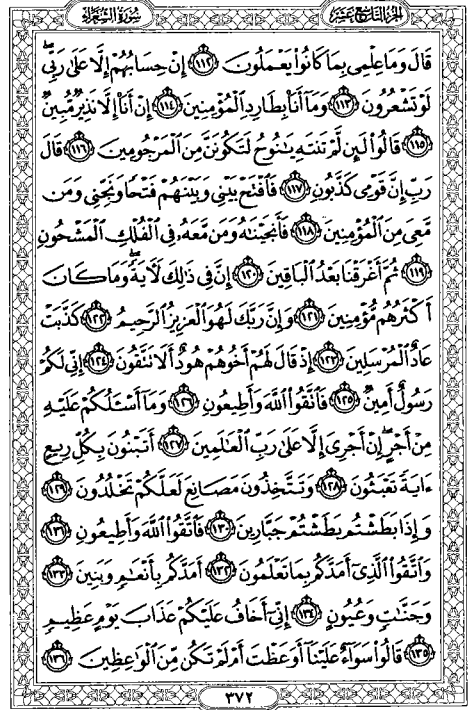 سُورَةُ الشُّعَرَاءِ الجُزْءُ التَّاسِعَ عَشَرَ
قَالَ وَمَا عِلْمِى بِمَا كَانُوا۟ يَعْمَلُونَ ١١٢ إِنْ حِسَابُهُمْ إِلَّا عَلَىٰ رَبِّى ۖ
لَوْ تَشْعُرُونَ ١١٣ وَمَآ أَنَا۠ بِطَارِدِ ٱلْمُؤْمِنِينَ ١١٤ إِنْ أَنَا۠ إِلَّا نَذِيرٌ مُّبِينٌ
١١٥ قَالُوا۟ لَئِن لَّمْ تَنتَهِ يَـٰنُوحُ لَتَكُونَنَّ مِنَ ٱلْمَرْجُومِينَ ١١٦ قَالَ
رَبِّ إِنَّ قَوْمِى كَذَّبُونِ ١١٧ فَٱفْتَحْ بَيْنِى وَبَيْنَهُمْ فَتْحًا وَنَجِّنِى وَمَن
مَّعِىَ مِنَ ٱلْمُؤْمِنِينَ ١١٨ فَأَنجَيْنَـٰهُ وَمَن مَّعَهُۥ فِى ٱلْفُلْكِ ٱلْمَشْحُونِ
١١٩ ثُمَّ أَغْرَقْنَا بَعْدُ ٱلْبَاقِينَ ١٢٠ إِنَّ فِى ذَٰلِكَ لَـَٔايَةً ۖ وَمَا كَانَ
أَكْثَرُهُم مُّؤْمِنِينَ ١٢١ وَإِنَّ رَبَّكَ لَهُوَ ٱلْعَزِيزُ ٱلرَّحِيمُ ١٢٢ كَذَّبَتْ
عَادٌ ٱلْمُرْسَلِينَ ١٢٣ إِذْ قَالَ لَهُمْ أَخُوهُمْ هُودٌ أَلَا تَتَّقُونَ ١٢٤ إِنِّى لَكُمْ
رَسُولٌ أَمِينٌ ١٢٥ فَٱتَّقُوا۟ ٱللَّهَ وَأَطِيعُونِ ١٢٦ وَمَآ أَسْـَٔلُكُمْ عَلَيْهِ
مِنْ أَجْرٍ ۖ إِنْ أَجْرِىَ إِلَّا عَلَىٰ رَبِّ ٱلْعَـٰلَمِينَ ١٢٧ أَتَبْنُونَ بِكُلِّ رِيعٍ
ءَايَةً تَعْبَثُونَ ١٢٨ وَتَتَّخِذُونَ مَصَانِعَ لَعَلَّكُمْ تَخْلُدُونَ ١٢٩
وَإِذَا بَطَشْتُم بَطَشْتُمْ جَبَّارِينَ ١٣٠ فَٱتَّقُوا۟ ٱللَّهَ وَأَطِيعُونِ ١٣١
وَٱتَّقُوا۟ ٱلَّذِىٓ أَمَدَّكُم بِمَا تَعْلَمُونَ ١٣٢ أَمَدَّكُم بِأَنْعَـٰمٍ وَبَنِينَ ١٣٣
وَجَنَّـٰتٍ وَعُيُونٍ ١٣٤ إِنِّىٓ أَخَافُ عَلَيْكُمْ عَذَابَ يَوْمٍ عَظِيمٍ
١٣٥ قَالُوا۟ سَوَآءٌ عَلَيْنَآ أَوَعَظْتَ أَمْ لَمْ تَكُن مِّنَ ٱلْوَٰعِظِينَ ١٣٦
٣٧٢